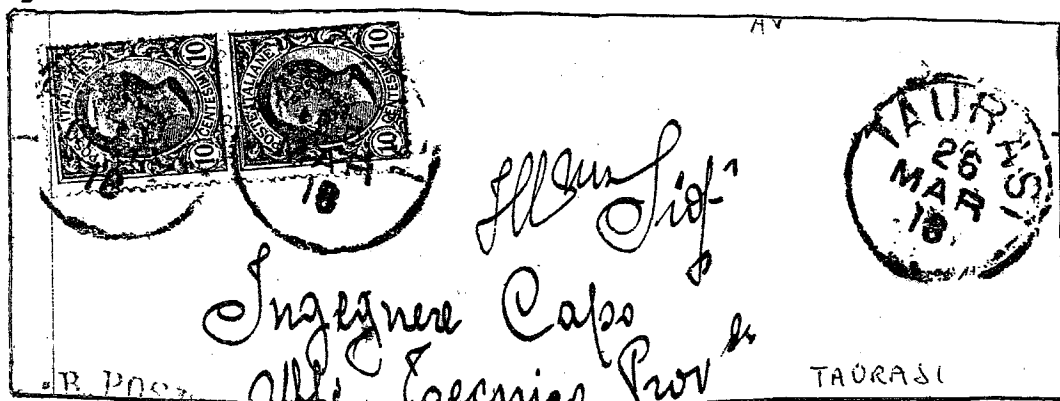 AV
POSTE ITALIANE
10 CENTESIMI 10
ITALIANE
10 CENTESIMI 10
18
MAR
18
TAURASI
26
MAR
18
Ill.mo Sig.r
Ingegnere Capo
Uff. Tecnico Prov.le
TAURASI
R. POS